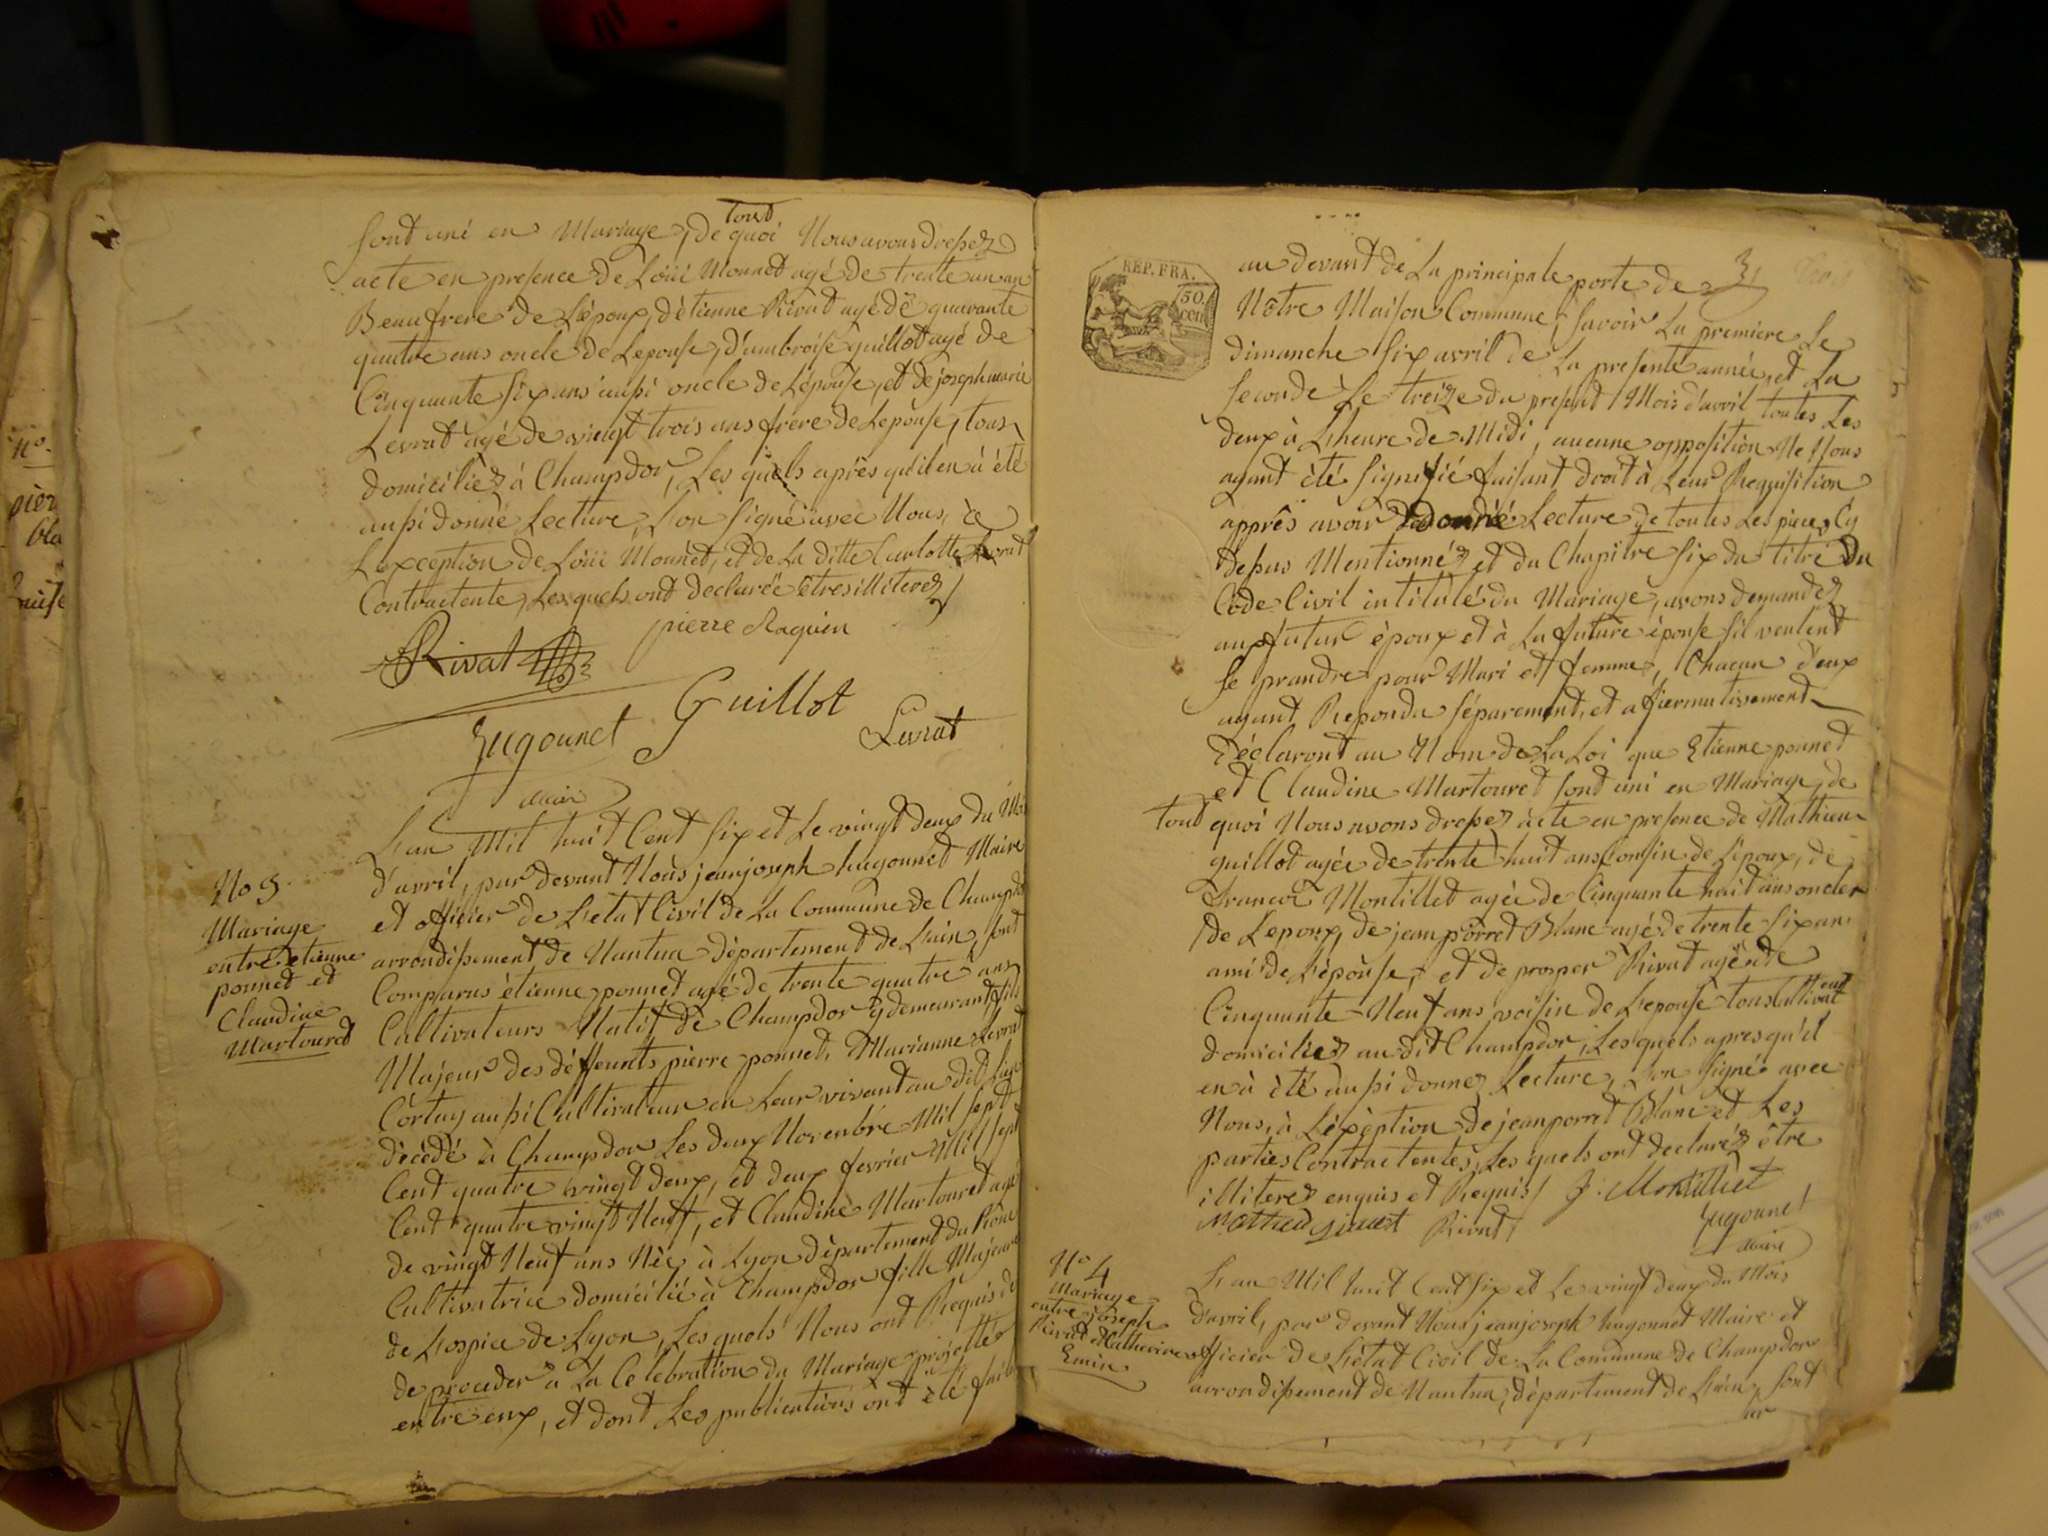 tout
sont uni en Mariage, de quoi Nous avons dressez
acte en presence de Loüi Monnet agé de trente un an
Beaufrere de L'époux, d'étienne Rivat agé de quarante
quatre ans oncle de Lepouse, d'ambroise guillot agé de
Cinquante six ans aussi oncle de L'épouse, et de joseph marie
Levrat agé de vingt trois ans frere de Lepouse, tous
domiciliéz à Champdor, Les quels après qu'il en à été
aussi donné Lecture, son signé avec Nous, à
Lexception de Loüi Monnet, et de La ditte Carlotte Levrat
Contractente, Les quels ont declarée êtres illiterez/
pierre Raquin
Rivat
Guillot
hugonnet
Levrat
maire
No 3.
Mariage
entre etienne
ponnet et
Claudine
Martouret
L'an Mil huit Cent six et Le vingt deux du Moi
d'avril, par devant Nous jean joseph hugonnet Maire
et officier de L'etat Civil de La Commune de Champdor
arrondissement de Nantua département de L'ain, sont
Comparus étienne ponnet agé de trente quatre ans
Cultivateurs Natif de Champdor y demeurant fils
Majeur des déffeunts pierre ponnet, et Marianne Levrat
Cortay aussi Cultivateur en Leur vivant au dit Lieu
décédé à Champdor Les deux Novenbre Mil sept
Cent quatre vingt deux, et deux fevrier Mil sept
Cent quatre vingt Neuf, et Claudine Martouret agé
de vingt Neuf ans Née à Lyon département du Rône
Cultivatrice domicilié à Champdor fille Majeure
de Lospice de Lyon, Les quels Nous ont Requis de
de proceder à La Celebration du Mariage projetté
entre eux, et dont Les publications ont été faite
REP. FRA.
50.
cen.
au devant de La principale porte de
Nôtre Maison Commune, savoir La premiere Le
dimanche six avril de La presente année, et La
seconde Le treize du present Mois d'avril toutes Les
deux à L'heure de Midi, aucune opposition Ne Nous
ayant été signifié faisant droit à Leur Requisition
apprês avoir donné Lecture de toutes Les pieces Cy
dessus Mentionnéz et du Chapitre six du titre du
Code Civil intitulé du Mariage, avons demandez
aux futur époux et à La future épouse s'il veulent
se prandre pour Mari et femme, Chacun d'eux
ayant Repondu séparement, et affiermatissement
Déclaront au Nom de La Loi que Etienne ponnet
et Claudine Martouret sont uni en Mariage, de
tout quoi Nous avons dressez acte en presence de Mathieu
guillot agée de trente huit ans Consin de L'époux, de
francoi Montillet agée de Cinquante huit ans oncle
de Lepoux, de jean porret Blanc agé de trente six an
ami de L'épouse, et de prosper Rivat agé de
Cinquante Neuf ans voisin de L'epouse tous Cultivateur
domiciliez au dit Champdor, Les quels apres qu'il
en à été aussi donnez Lecture, son signé avec
Nous, à L'éxéption de jean porret Blanc et Les
parties Contractentes, Les quels ont declaréz être
illiterez enquis et Requis/ f. Montilliet
Mathieu guillot Rivat
hugonnet
maire
No 4
Mariage
entre Joseph
Rivat et Catherine
Emin
L'an Mil huit Cent six et Le vingt deux du Mois
d'avril, par devant Nous jean joseph hugonnet Maire et
officier de L'état Civil de La Commune de Champdor
arrondissement de Nantua, département de L'ain, sont